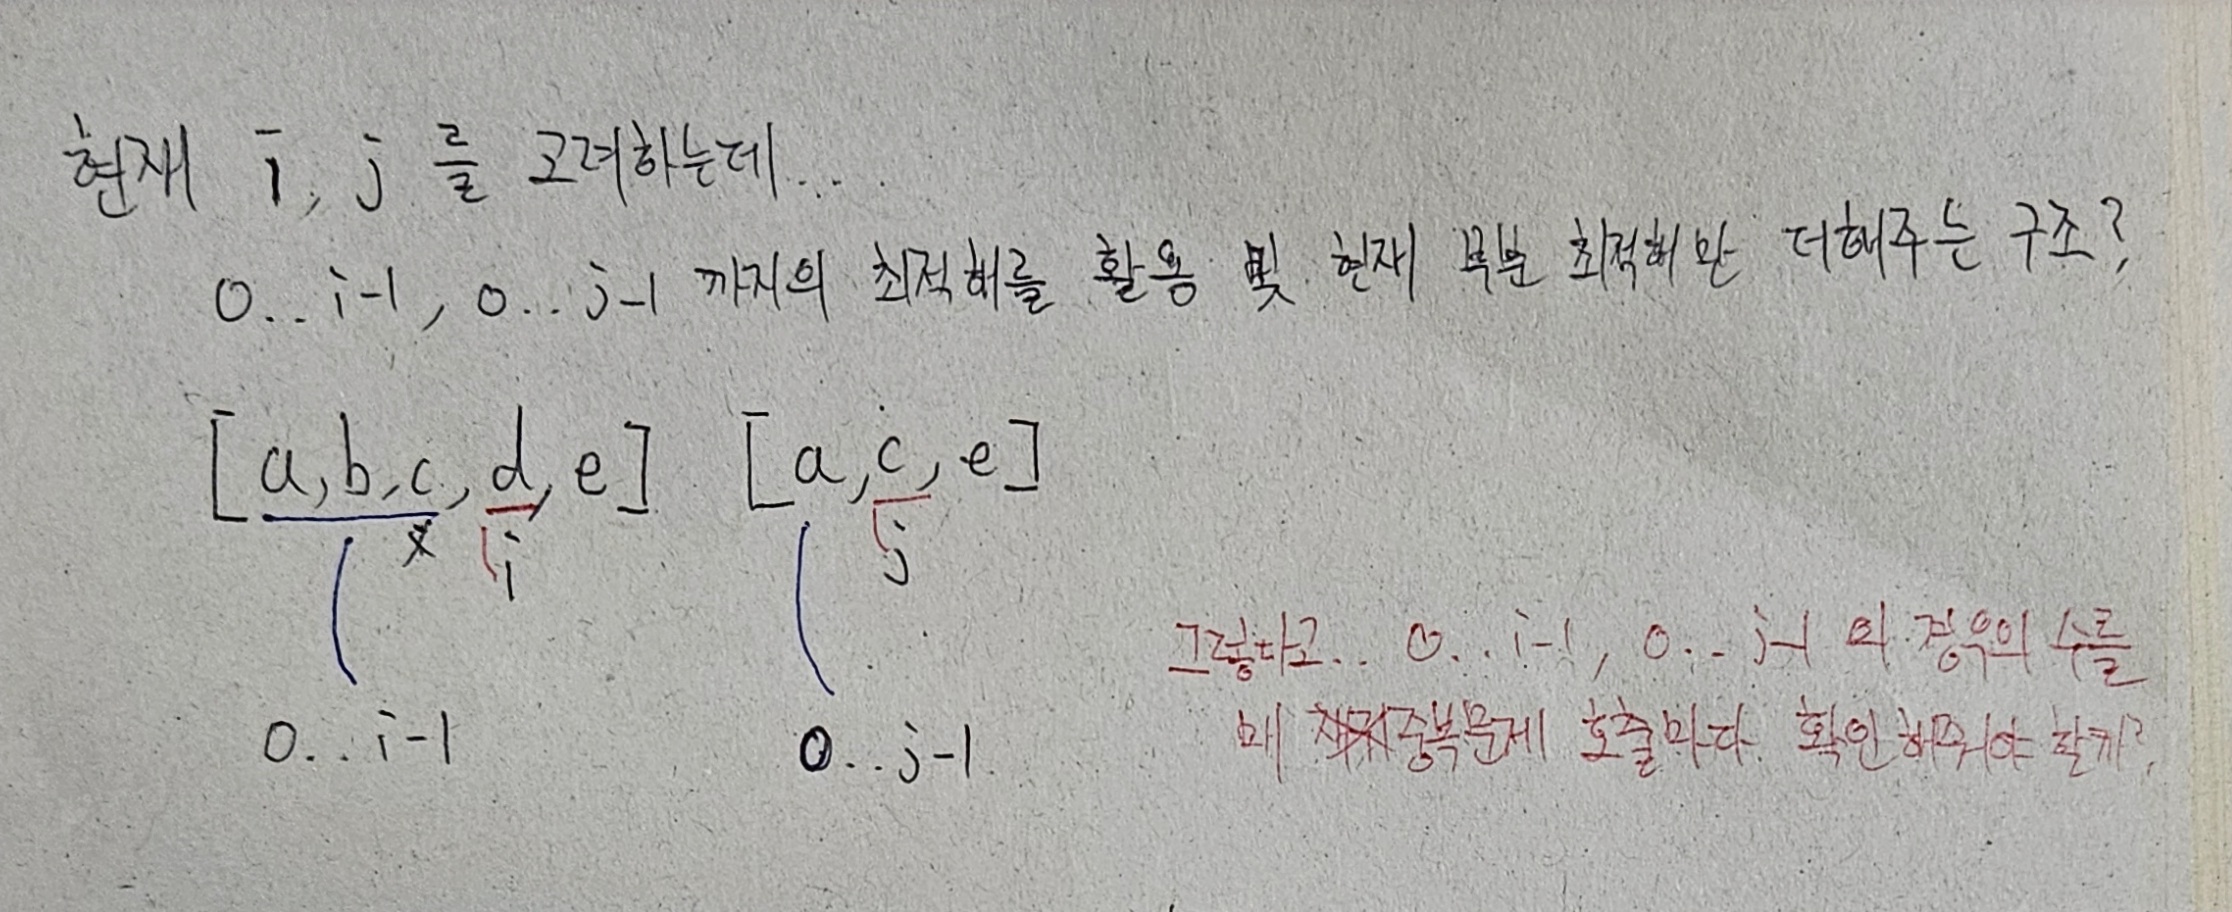 현재 i, j 를 고려하는데...
0..i-1, 0..j-1 까지의 최적해를 활용 및 현재 부분 최적해만 더해주는 구조?
[a,b,c,d,e] [a,c,e]
i j
0..i-1 0..j-1
그렇다고.. 0..i-1, 0..j-1 의 경우의 수를
매 중복문제 호출마다 확인해줘야 할까?